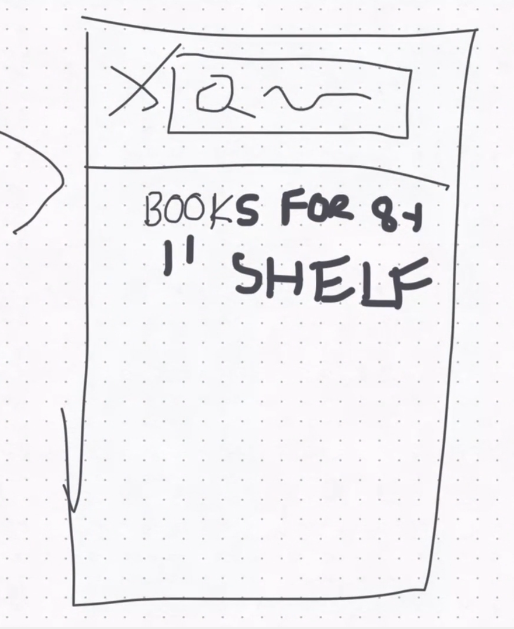 BOOKS FOR 84
" SHELF